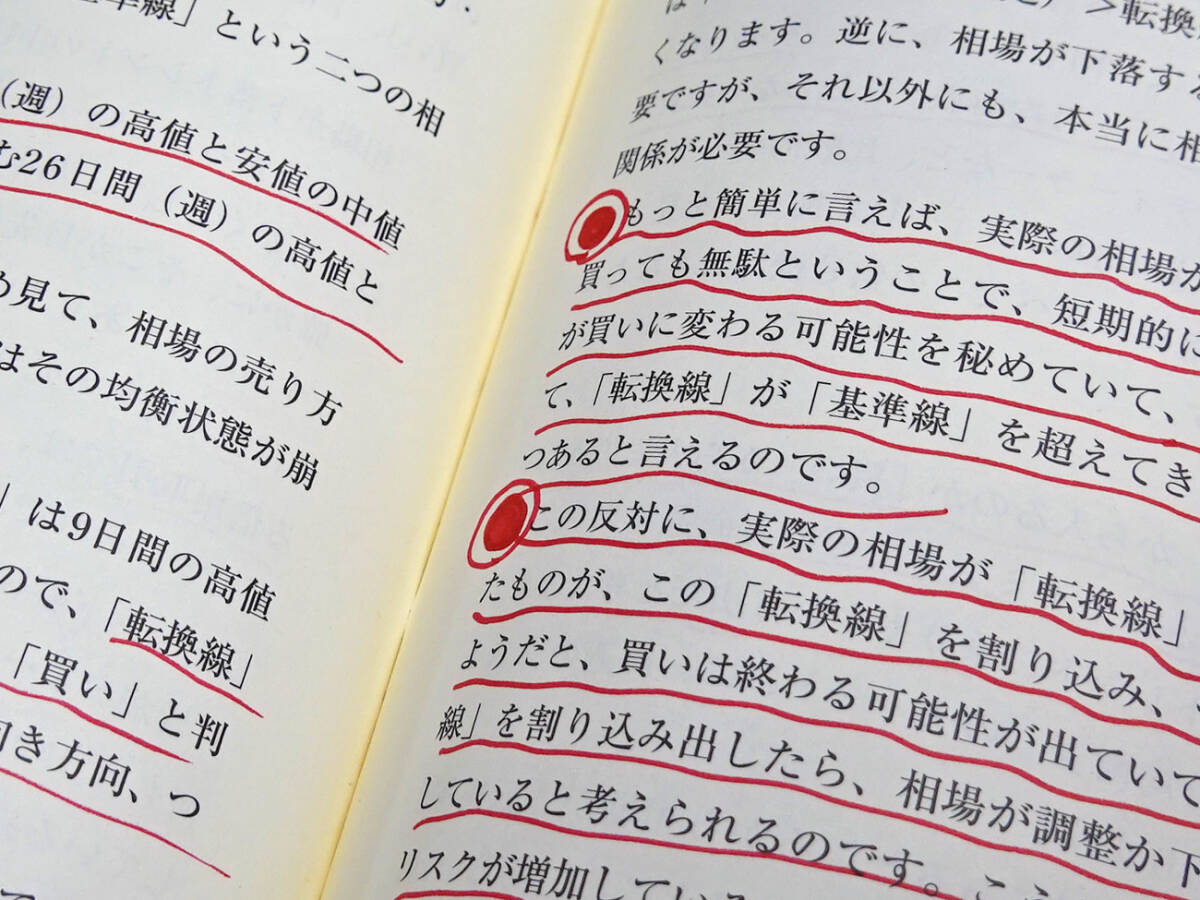 準線」という二つの相
（週）の高値と安値の中値
む26日間（週）の高値と
見て、相場の売り方
はその均衡状態が崩
」は9日間の高値
ので、「転換線」
「買い」と判
き方向、つ
＞転換
くなります。逆に、相場が下落する
要ですが、それ以外にも、本当に相
関係が必要です。
もっと簡単に言えば、実際の相場が
買っても無駄ということで、短期的に
が買いに変わる可能性を秘めていて、
て、「転換線」が「基準線」を超えてき
つあると言えるのです。
この反対に、実際の相場が「転換線」
たものが、この「転換線」を割り込み、
ようだと、買いは終わる可能性が出ていて
線」を割り込み出したら、相場が調整か下
していると考えられるのです。こう
リスクが増加している